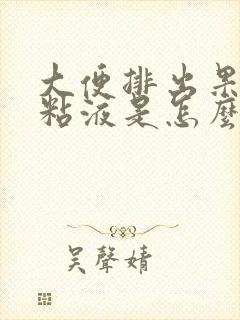 大便排出果
粘液是怎麼
吴聲婧